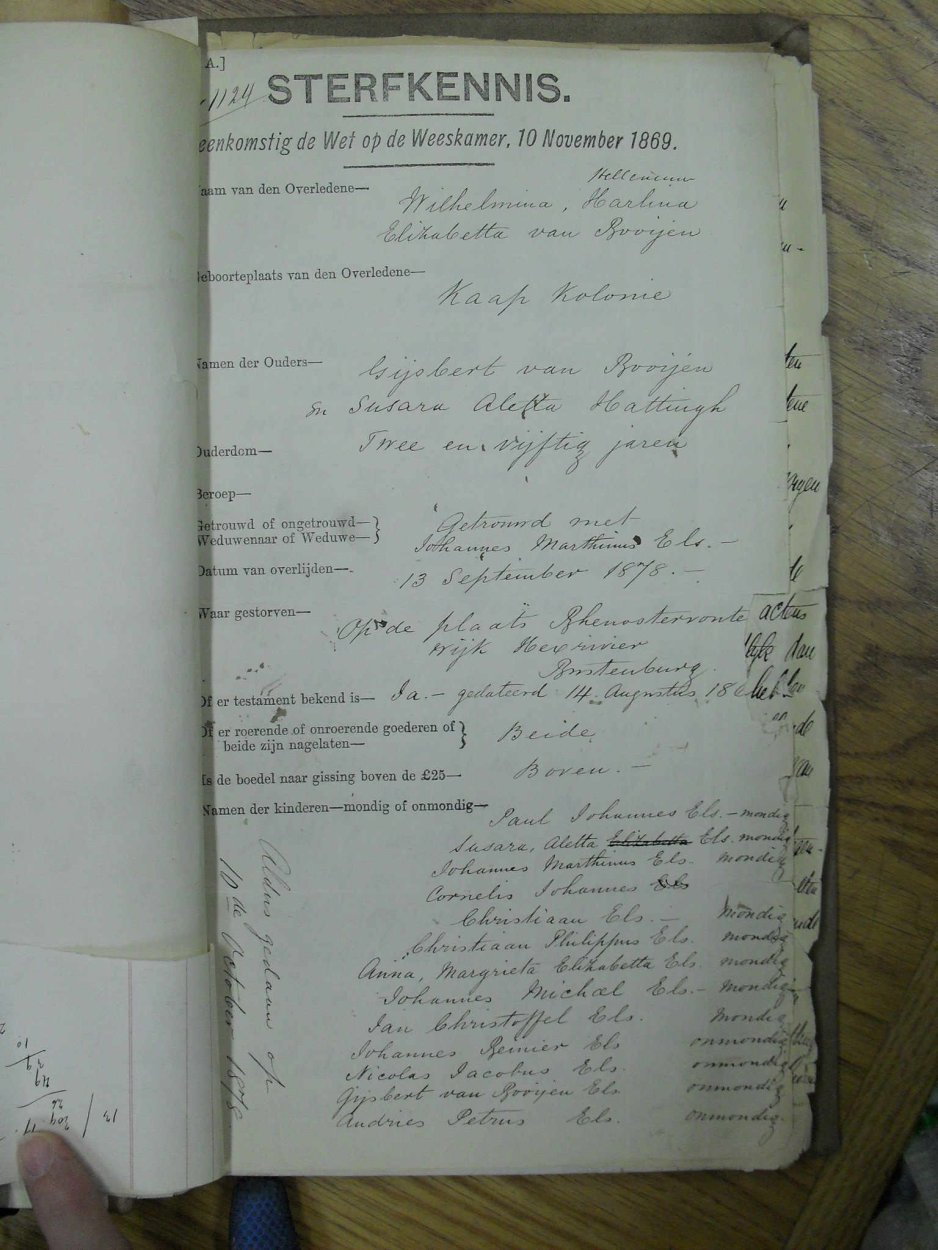 A.]
1124
STERFKENNIS.
eenkomstig de Wet op de Weeskamer, 10 November 1869.
aam van den Overledene—
Wilhelmina, Harlina
Elizabetta van Rooijen
eboorteplaats van den Overledene—
Kaap Kolonie
Namen der Ouders—
Gijsbert van Rooijen
En Susara Aletta Hattingh
Ouderdom—
Twee en vijftig jaren
Beroep—
Getrouwd of ongetrouwd—}
Weduwenaar of Weduwe—}
Getrouwd met
Johannes Marthinus Els.—
Datum van overlijden—
13 September 1878.—
Waar gestorven—
Op de plaats Rhenostervonte
wijk Hexrivier
Rustenburg.
Of er testament bekend is—
Ja.— gedateerd 14 Augustus 186
Of er roerende of onroerende goederen of }
beide zijn nagelaten— }
Beide
Is de boedel naar gissing boven de £25—
Boven.—
Namen der kinderen—mondig of onmondig—
Paul Johannes Els.—mondig
Susara, Aletta Elizabetta Els. mondig
Johannes Marthinus Els. mondig
Cornelis Johannes Els
Christiaan Els.— mondig
Christiaan Philippus Els. mondig
Anna, Margrieta Elizabetta Els. mondig
Johannes Michael Els.— mondig
Jan Christoffel Els. mondig
Johannes Reinier Els onmondig
Nicolas Jacobus Els. onmondig
Gijsbert van Rooijen Els onmondig
Andries Petrus Els. onmondig
Aldus gedaan op
10 de October 1878
actens
dan